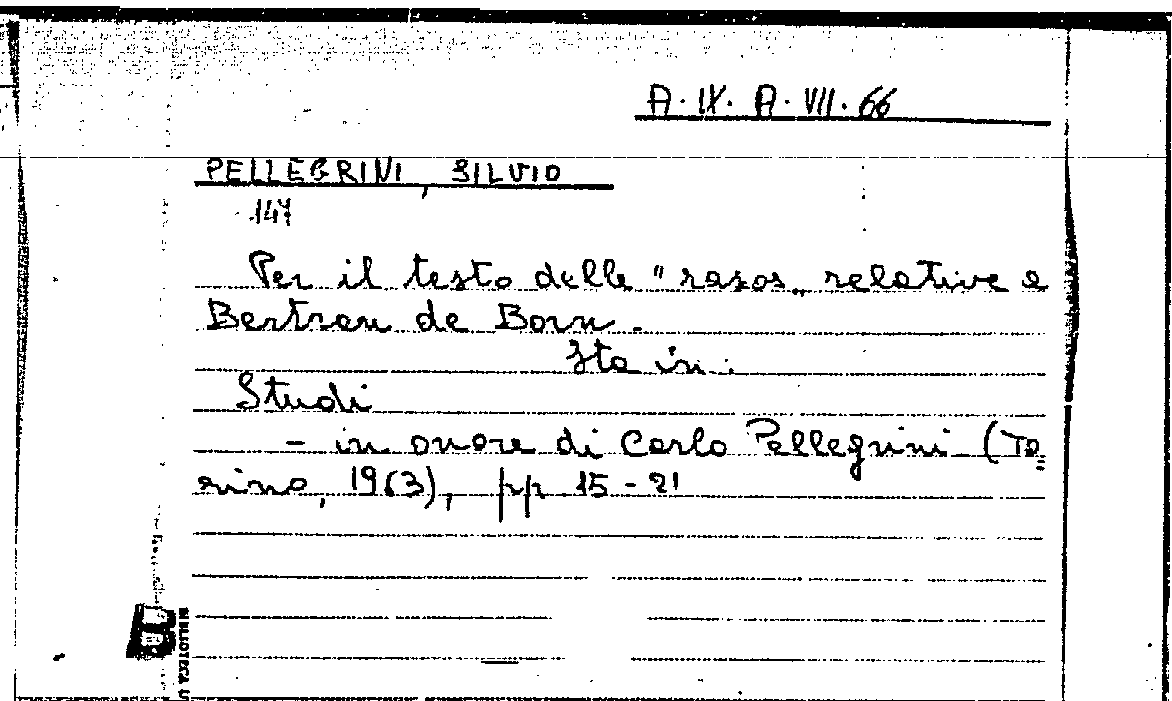 A. IX. A. VII. 66
PELLEGRINI, SILVIO
147
Per il testo delle "razos„ relative a
Bertran de Born.
Sta in:
Studi
- in onore di Carlo Pellegrini (To=
rino, 1963), pp. 15-21
BIBLIOTECA U